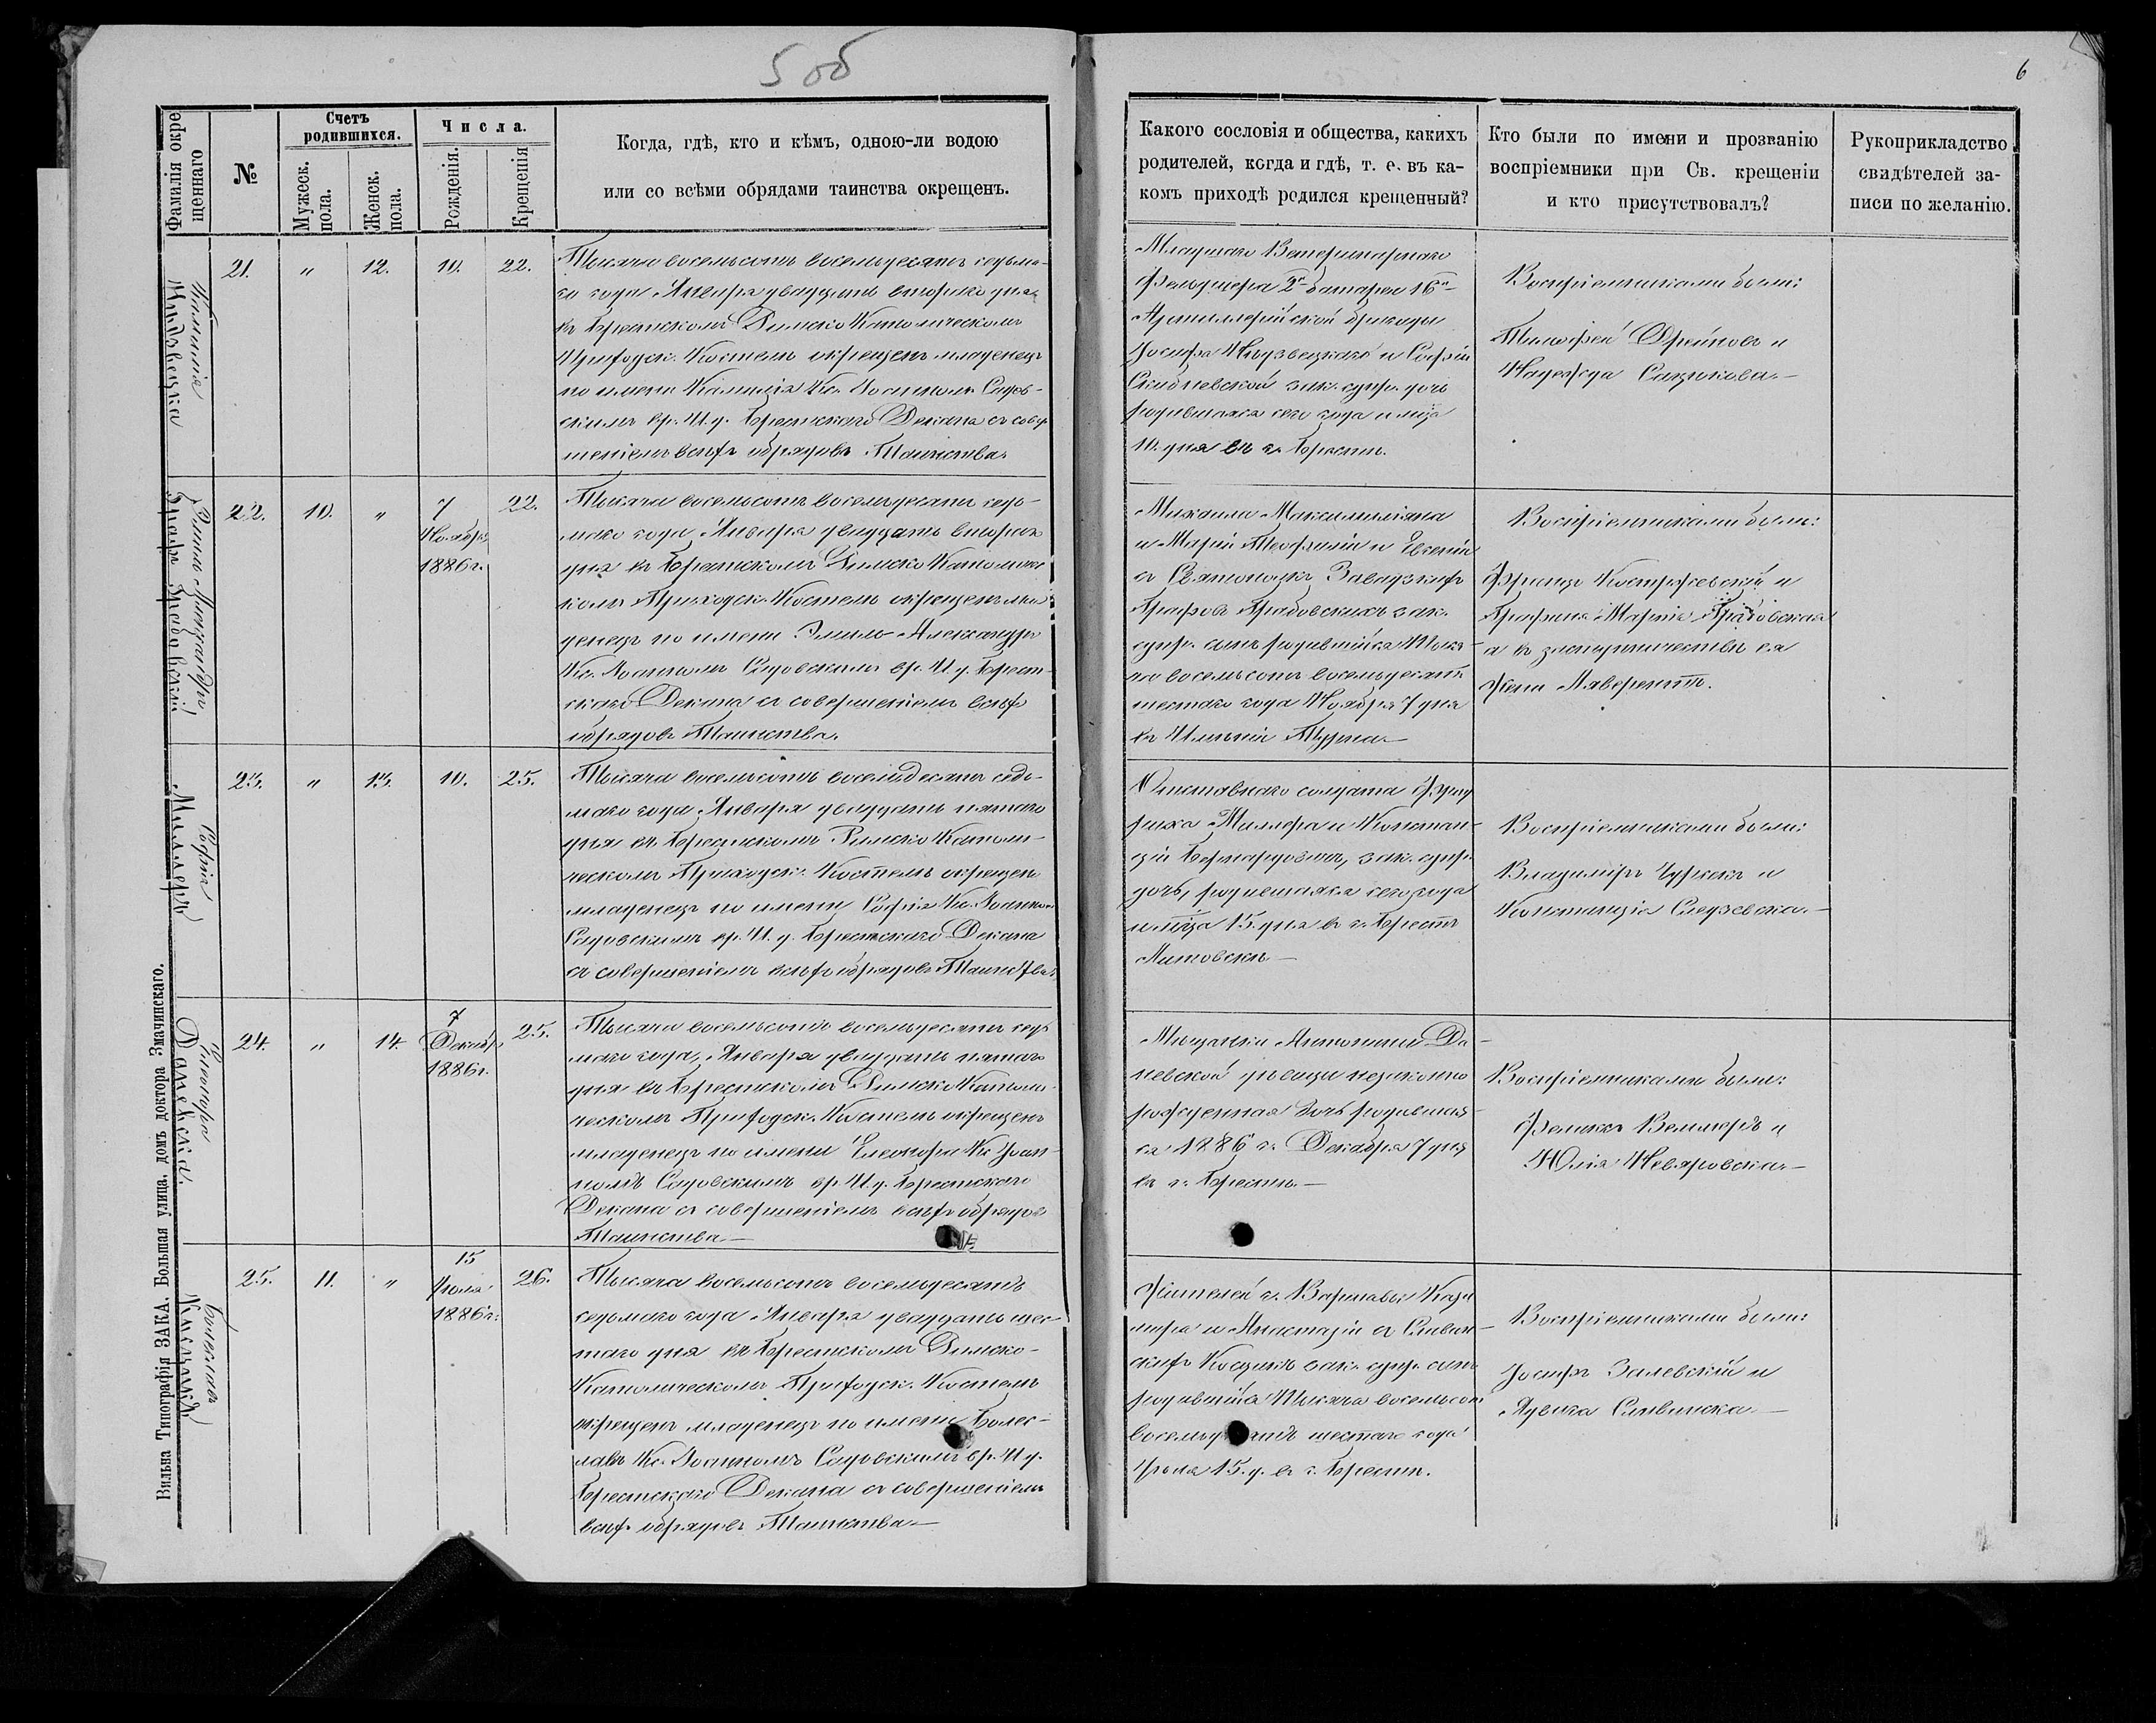 5 об
6
Фамилія окрещеннаго
№
Счетъ родившихся.
Мужеск. пола.
Женск. пола.
Числа.
Рожденія.
Крещенія
Когда, гдѣ, кто и кѣмъ, одною-ли водою
или со всѣми обрядами таинства окрещенъ.
Какого сословія и общества, какихъ
родителей, когда и гдѣ, т. е. въ ка-
комъ приходѣ родился крещенный?
Кто были по имени и прозванію
воспріемники при Св. крещеніи
и кто присутствовалъ?
Рукоприкладство
свидѣтелей за-
писи по желанію.
21. " 12. 10. 22.
Тысяча восемьсотъ восемьдесятъ седьма-
го года Января двадцать втораго дня
въ Брестскомъ Римско Католическомъ
Приходск. Костелѣ окрещенъ младенецъ
по имени Камилія Кс. Іоанномъ Садов-
скимъ вр. И. д. Брестскаго Декана съ совер-
шеніемъ всѣхъ обрядовъ Таинства.
Младшаго Ветеринарнаго
Фельдшера 2й батареи 16й
Артиллерійской бригады
Іосифа и Софіи
зак. супр. дочь
родившаяся сего года и мца
10. дня въ г. Брестѣ.
Воспріемниками были:
Тимофей и
Надежда
22. 10. " 7 Ноября 1886 г. 22.
Эмиль Александръ
Графъ Грабовскій
Тысяча восемьсотъ восемьдесятъ седь-
маго года Января двадцать втораго
дня въ Брестскомъ Римско Католиче
комъ Приходск. Костелѣ окрещенъ мла-
денецъ по имени Эмиль-Александръ
Кс. Іоанномъ Садовскимъ вр. И. д. Брест-
скаго Декана съ совершеніемъ всѣхъ
обрядовъ Таинства.
Михаила Максимиліяна
и Маріи Теофиліи и Евгеніи
съ Завадзкихъ
Графовъ Грабовскихъ зак.
супр. сынъ родившійся Тыся-
ча восемьсотъ восемьдесятъ
шестаго года Ноября 7 дня
въ Имѣніи
Воспріемниками были:
Францъ и
Графиня Марія Грабовская
а въ заступничествѣ ея
23. " 13. 10. 25.
Софія
Миллеръ
Тысяча восемьсотъ восемьдесятъ седь-
маго года Января двадцать пятаго
дня въ Брестскомъ Римско Католи-
ческомъ Приходск. Костелѣ окрещенъ
младенецъ по имени Софія Кс. Іоанномъ
Садовскимъ вр. И. д. Брестскаго Декана
съ совершеніемъ всѣхъ обрядовъ Таинства.
Отставнаго солдата Фрид
риха Миллера и Констан-
ціи зак. супр.
дочь, родившаяся сего года
и мца 15. дня въ г. Брестѣ
Литовскѣ.—
Воспріемниками были:
Владиміръ и
Констанція
24. " 14. 7 Декабр. 1886 г. 25.
Елеонора
Даневска.
Тысяча восемьсотъ восемьдесятъ седь
маго года, Января двадцать пятаго
дня въ Брестскомъ Римско Католи-
ческомъ Приходск. Костелѣ окрещенъ
младенецъ по имени Елеонора Кс. Іоан-
номъ Садовскимъ вр. И. д. Брестскаго
Декана съ совершеніемъ всѣхъ обрядовъ
Таинства.—
Мѣщанки Антонины Да-
невской дѣвицы незаконно
рожденная дочь родившая-
ся 1886 г. Декабря 7 дня
въ г. Брестѣ.—
Воспріемниками были:
Феликсъ и
Юлія
25. 11. " 15 Іюля 1886 г. 26.
Болеславъ
Тысяча восемьсотъ восемьдесятъ
седьмаго года Января двадцать шес-
таго дня въ Брестскомъ Римско-
Католическомъ Приходск. Костелѣ
окрещенъ младенецъ по имени Болес-
лавъ Кс. Іоанномъ Садовскимъ вр. И д.
Брестскаго Декана съ совершеніемъ
всѣхъ обрядовъ Таинства.—
Жителей г. Варшавы Кази
мира и Анастазіи съ Сливин-
скихъ зак. супр. сынъ
родившійся Тысяча восемьсотъ
восемьдесятъ шестаго года
Іюля 15. д. въ г. Брестѣ.
Воспріемниками были:
Іосифъ Залевскій и
Ядвига Сливинска.—
Вильна Типографія ЗАКА. Большая улица. домъ доктора Змачинскаго.